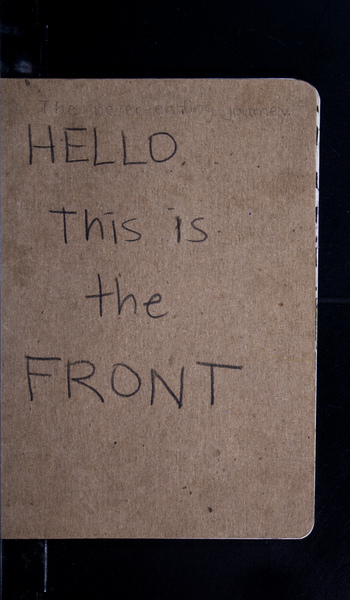 The never-ending journey.
HELLO.
This is
the
FRONT